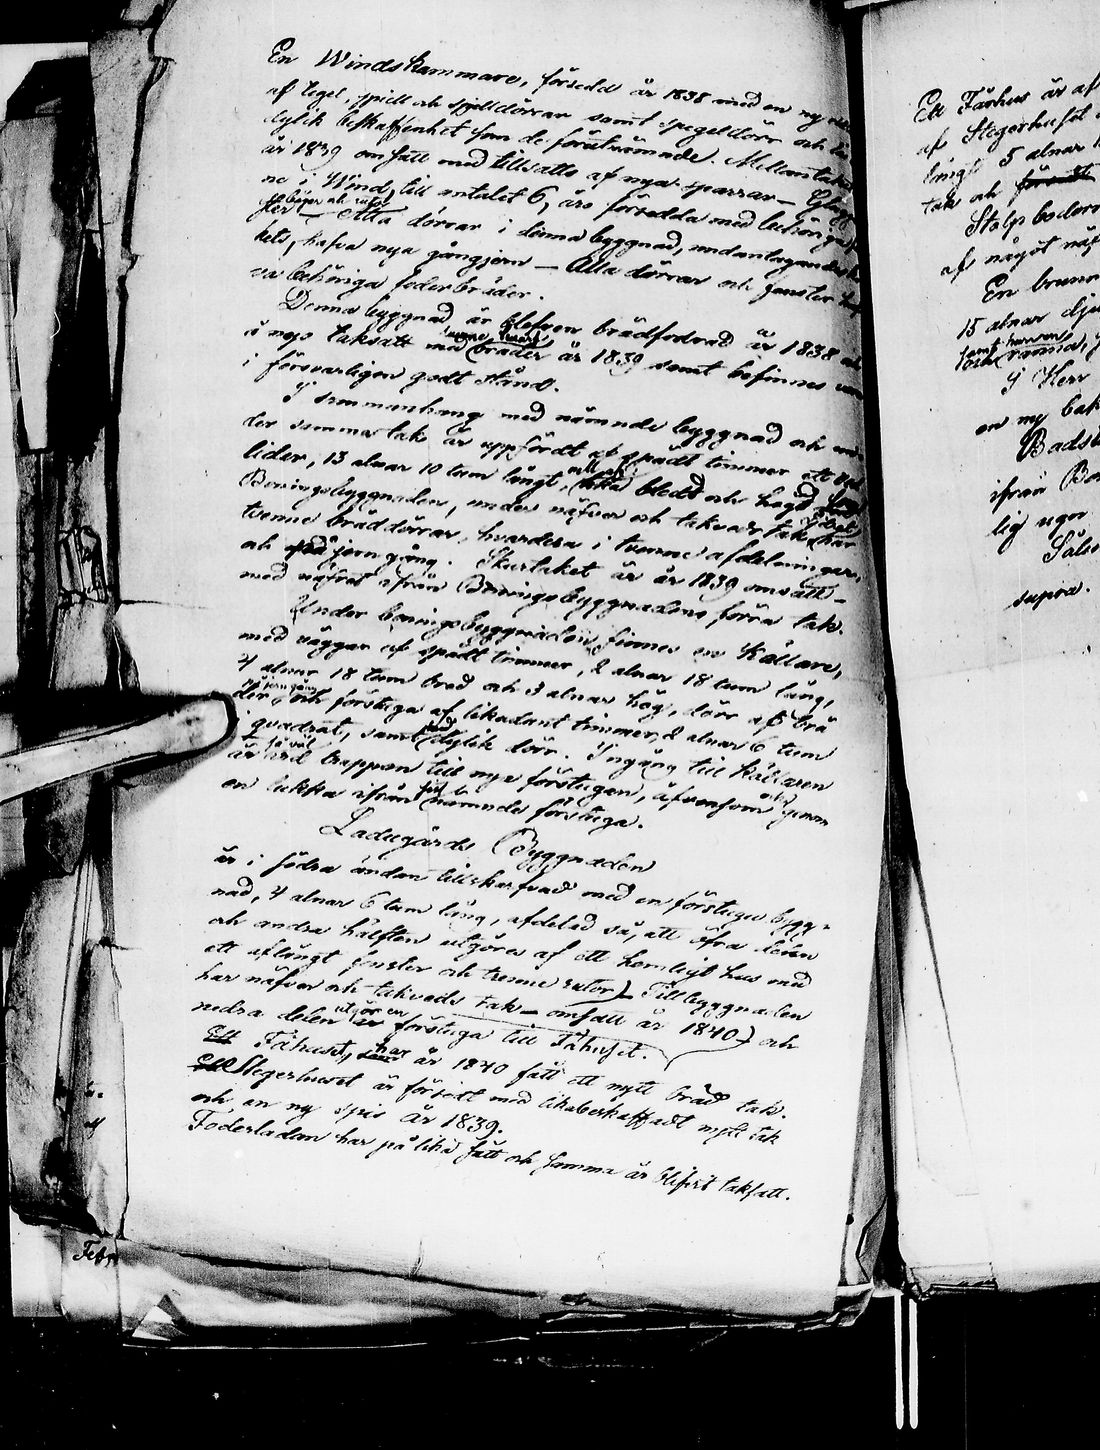 En Windskammare, försedd år 1838 med en ny
af tegel, spiell och spjelldörrar samt spegeldörr och
dylik beskaffenhet som de förutnämnde. Mellantaket
år 1839 omsatt med tillsatts af nya sparrar –
ne i Wind, till antalet 6, äro försedda med behöriga
bågar och rutor
– Alla dörrar i denna byggnad, undantagandes
kets, hafva nya gångjern – Alla dörrar och fenster
va behöriga foderbräder.
Denna byggnad är blefven brädfodrad år 1838 och
å nyo taksatt med bräder år 1839 samt befinnes vara
i försvarligen godt stånd.
I sammanhang med nämnde byggnad och un-
der samma tak är uppfördt af spådt timmer ett
lider, 13 alnar 10 tum långt, och af lika bredd och högd som
Boningsbyggnaden, under näfver och takvedstak, har
tvenne bräddörrar, hvardera i tvenne afdelningar,
och på jerngång. Skurtaket är år 1839 omsatt –
med näfret ifrån Boningsbyggnadens förra tak.
Under boningsbyggnaden finnes en Källare,
med väggar af spådt timmer, 2 alnar 18 tum lång,
4 alnar 18 tum bred och 3 alnar hög, dörr af brä
på jerngång
der, och förstuga af likadant timmer, 2 alnar 6 tum
i quadrat, samt med dylik dörr. Ingång till Källaren
är så väl trappan till nya förstugan, äfvensom genom
en lukka ifrån sist nämnde förstuga.
Ladugårds Byggnaden
är i södra ändan tillskarfvad med en förstugu bygg-
nad, 4 alnar 6 tum lång, afdelad så, att öfra delen
och andra hälften utgöres af ett hemligt hus med
ett aflångt fenster och trenne rutor) Tillbyggnaden
har näfver och takveds tak – omsatt år 1840) och
nedra delen utgör en förstuga till Fähuset.
Fähuset, har år 1840 fått ett nytt bräd tak.
Stegerhuset är försedt med likabeskaffadt nytt tak
och en ny spis år 1839.
Foderladan har på lika sätt och samma år blifvit taksatt.
Ett Fårhus är af
af Stegerhuset
långt 5 alnar
tak och försedt
Stolp boderne
af något näf
En brunn
15 alnar dju
samt
och ränna,
I Herr
en ny bak
Badst
ifrån Bon
lig ugn
supra.
Feb